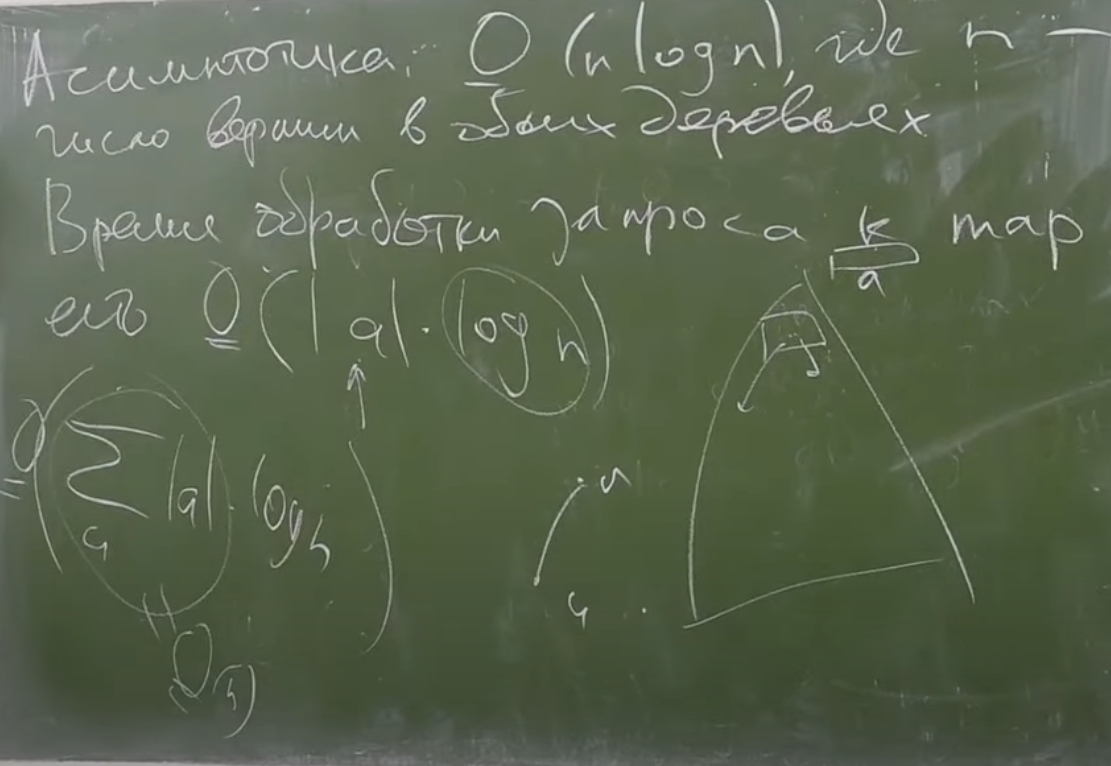 Асимптотика: O (n log n), где n —
число вершин в обоих деревьях
Время обработки запроса к map
a
есть O(|a| · log n)
O(Σ |a| · log n)
a
O(n)